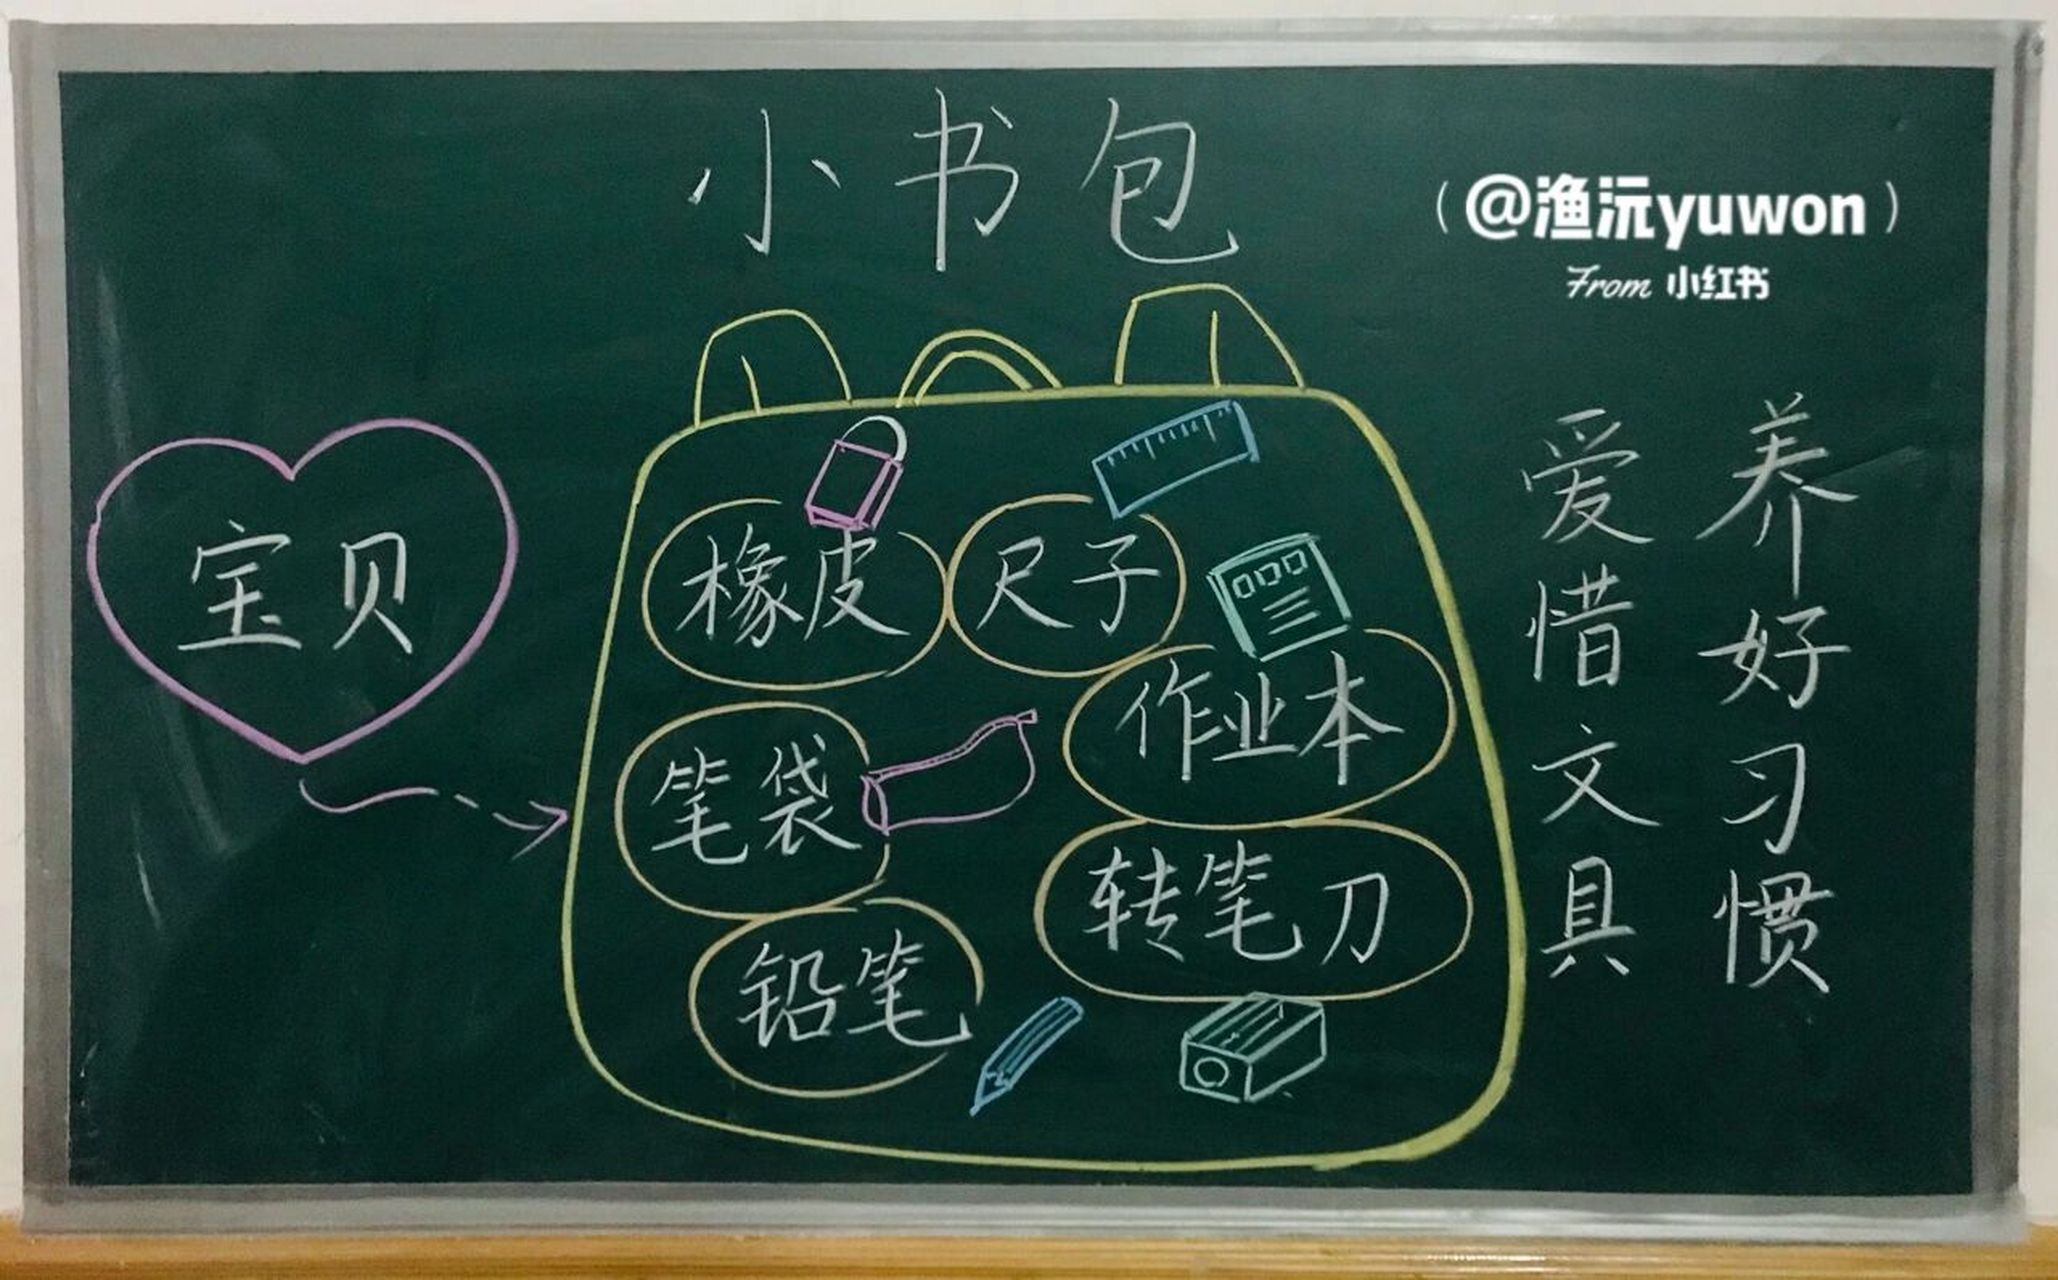 小书包
(@渔沅yuwon)
From 小红书
宝贝
橡皮
尺子
作业本
笔袋
转笔刀
铅笔
爱惜文具
养好习惯